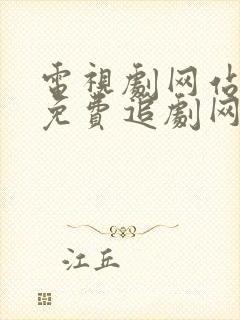 電視劇网估
免費追劇网
江丘